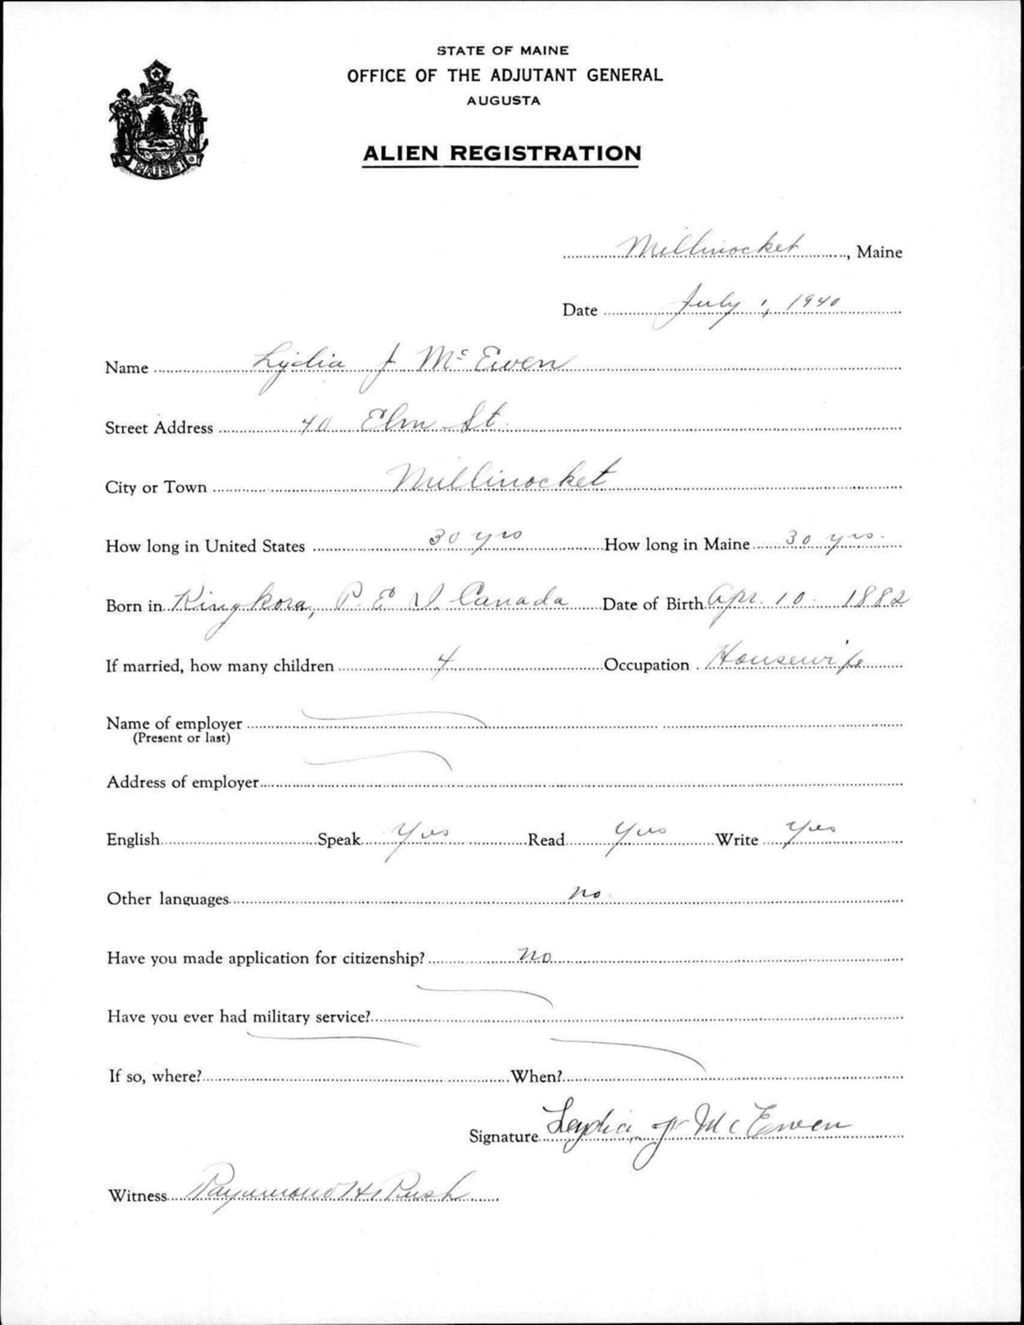 STATE OF MAINE
OFFICE OF THE ADJUTANT GENERAL
AUGUSTA
ALIEN REGISTRATION
MAINE
Millinocket, Maine
Date July 1, 1940
Name Lydia J McEwen
Street Address 40 Elm St.
City or Town Millinocket
How long in United States 30 yrs How long in Maine 30 yrs.
Born in Kingkora, P. E I. Canada Date of Birth Apr. 10 1882
If married, how many children 4 Occupation Housewife
Name of employer
(Present or last)
Address of employer
English Speak Yes Read Yes Write Yes
Other languages no
Have you made application for citizenship? No
Have you ever had military service?
If so, where? When?
Signature Lydia J McEwen
Witness Raymond H. Rush